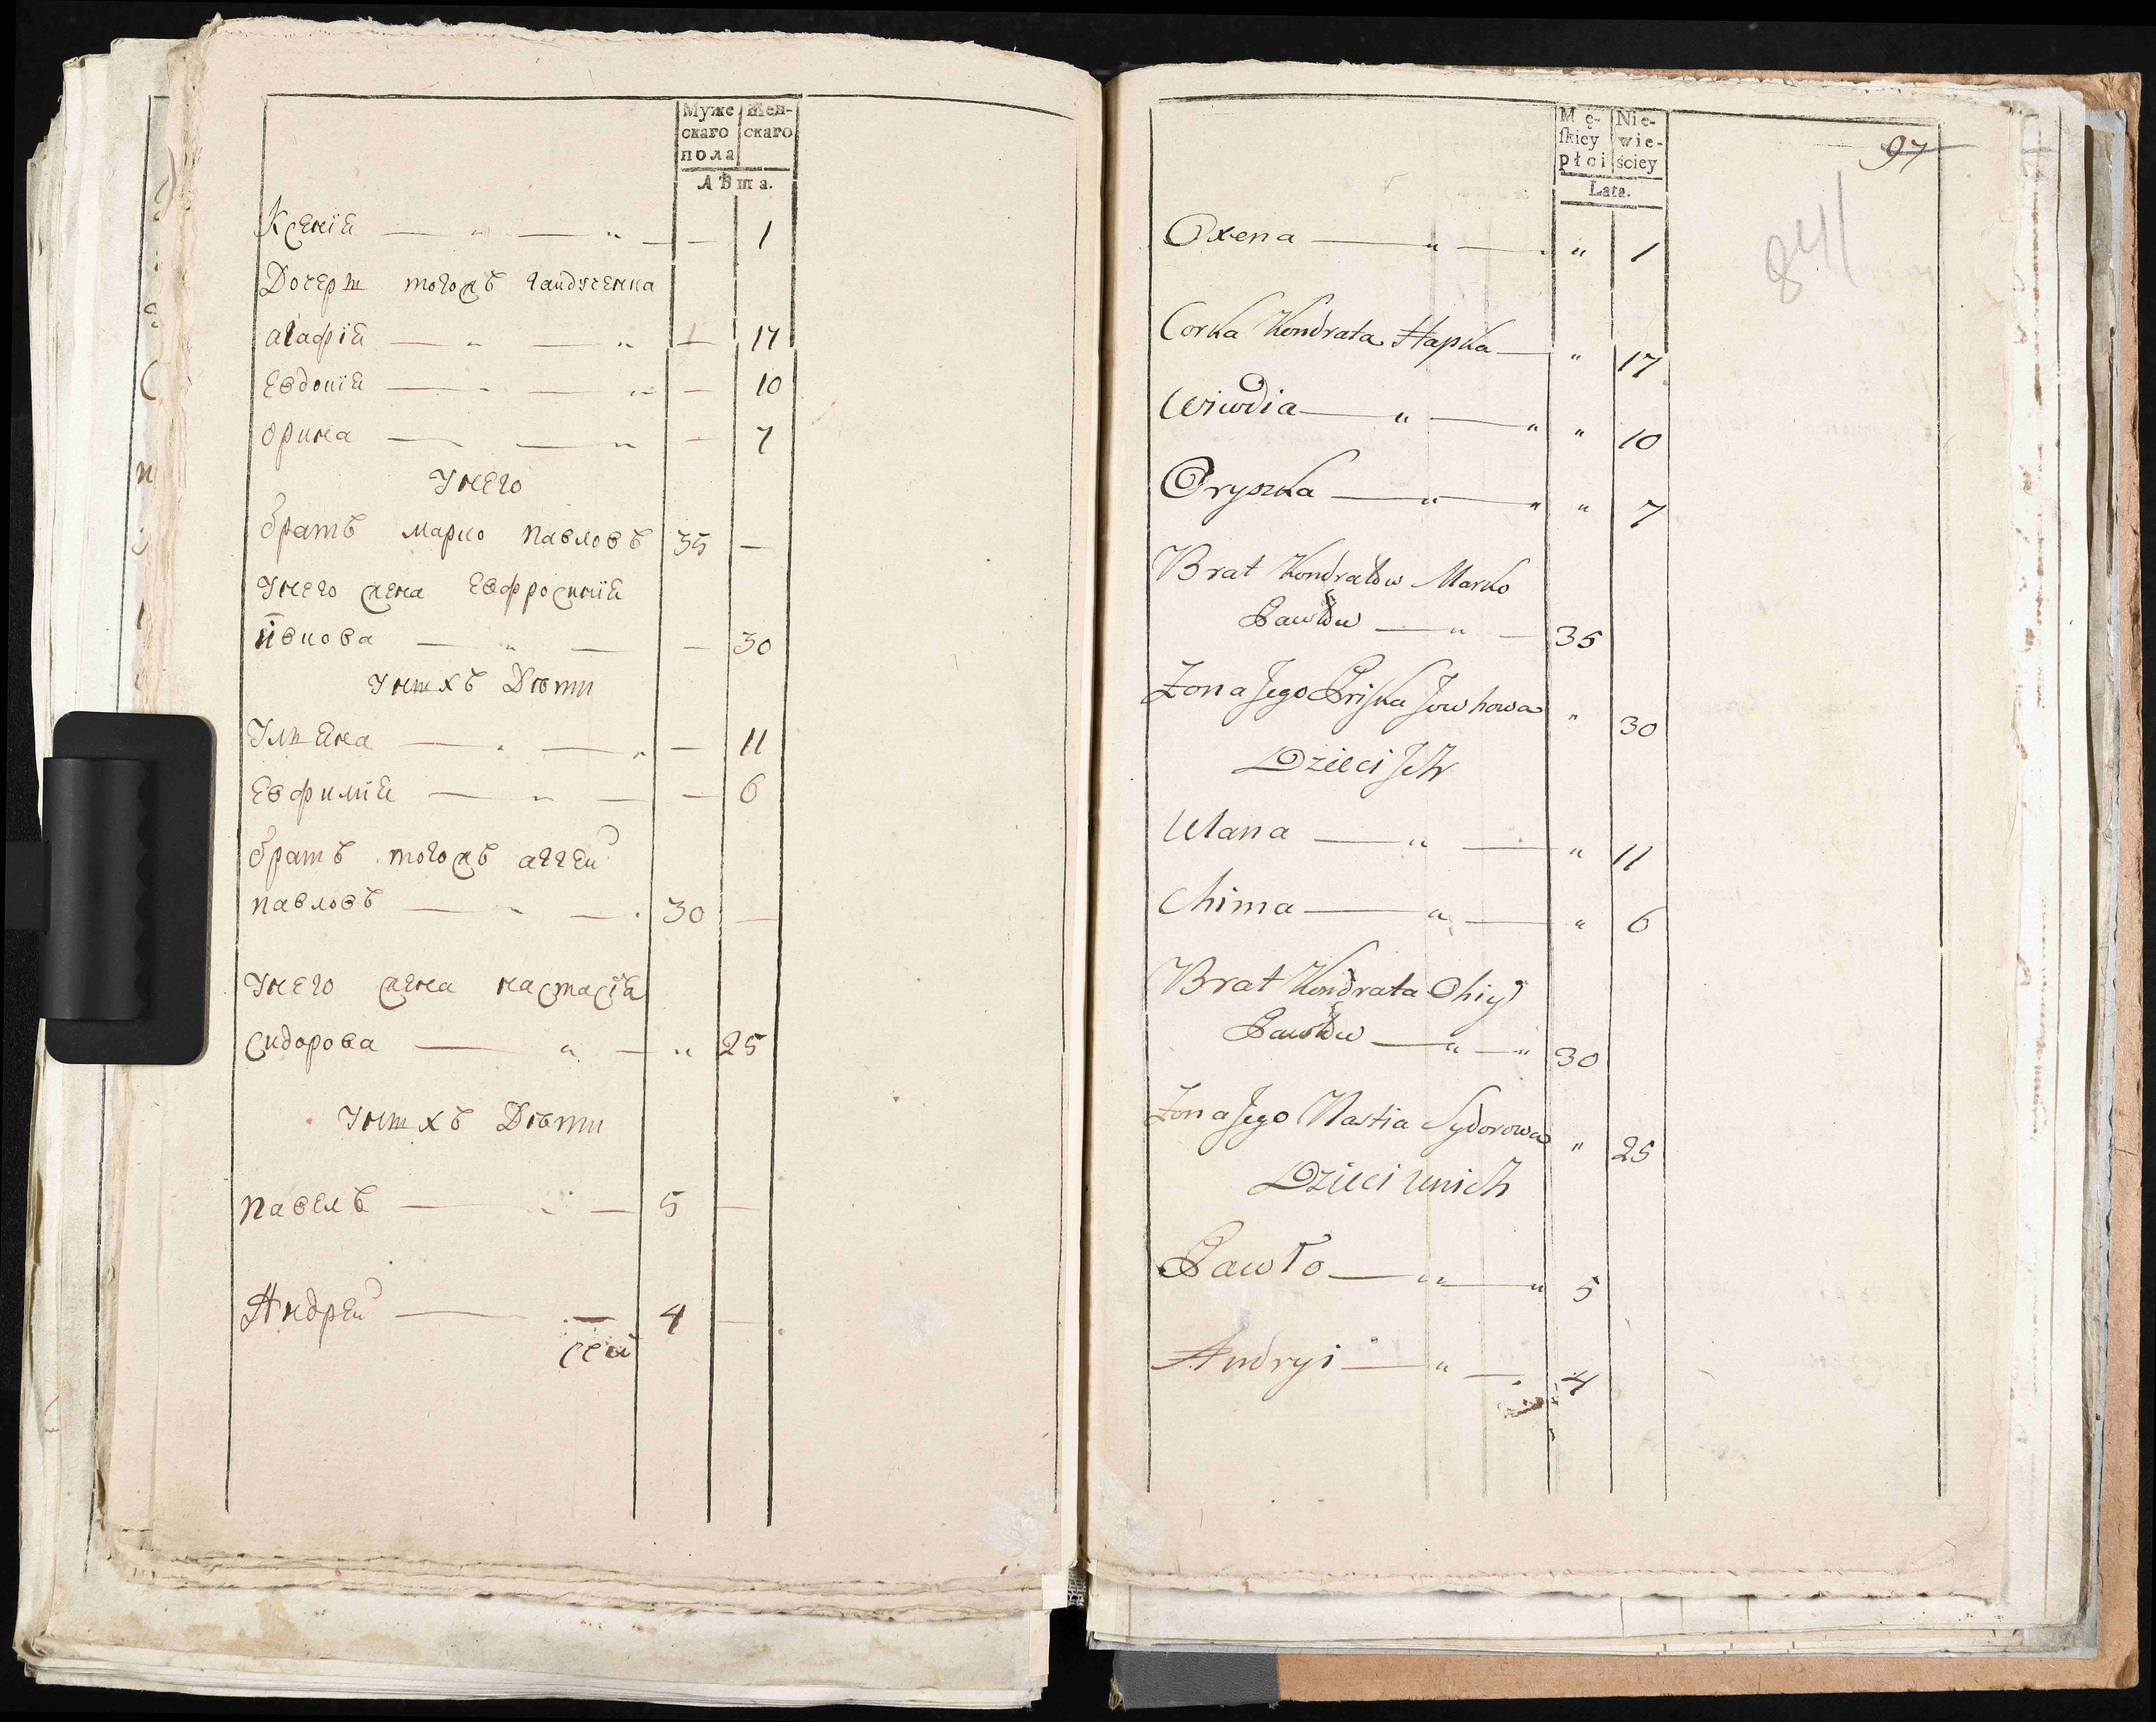 Муже Жен-
скаго скаго
пола
Лѣта.
Ксенія — „ — „ — — 1
Дочери тогожъ гайдученка
агафія — „ — „ — 17
Евдокія — „ — „ — 10
орина — — „ — 7
Унего
братъ марко павловъ 35 —
Унего жена Евфросинія
ивкова — „ — — 30
Унихъ Дѣти
Ульяна — „ — „ — 11
Евфимия — „ — — 6
братъ тогожъ аггей
павловъ — „ — 30 —
Унего жена настасія
сидорова — „ — „ 25
Унихъ Дѣти
павелъ — „ — 5 —
Андрей — — 4 —
сей
Mę- Nie-
ſkiey wie-
płci ściey
Lata.
97
841
Oxena — „ — „ 1
Corka Kondrata Hapka — „ 17
Wiwdia — „ — „ „ 10
Oryszka — „ — „ „ 7
Brat Kondratów Marko
Pawłów — „ — 35
Żona Jego Priſka Jowhowa „ 30
Dzieci Jch
Ulana — „ — „ 11
Chima — „ — „ 6
Brat Kondrata Ohiy
Pawłów — „ — „ 30
Żona Jego Nastia Sydorowa „ 25
Dzieci unich
Pawło — „ — „ 5
Andryi — „ — 4